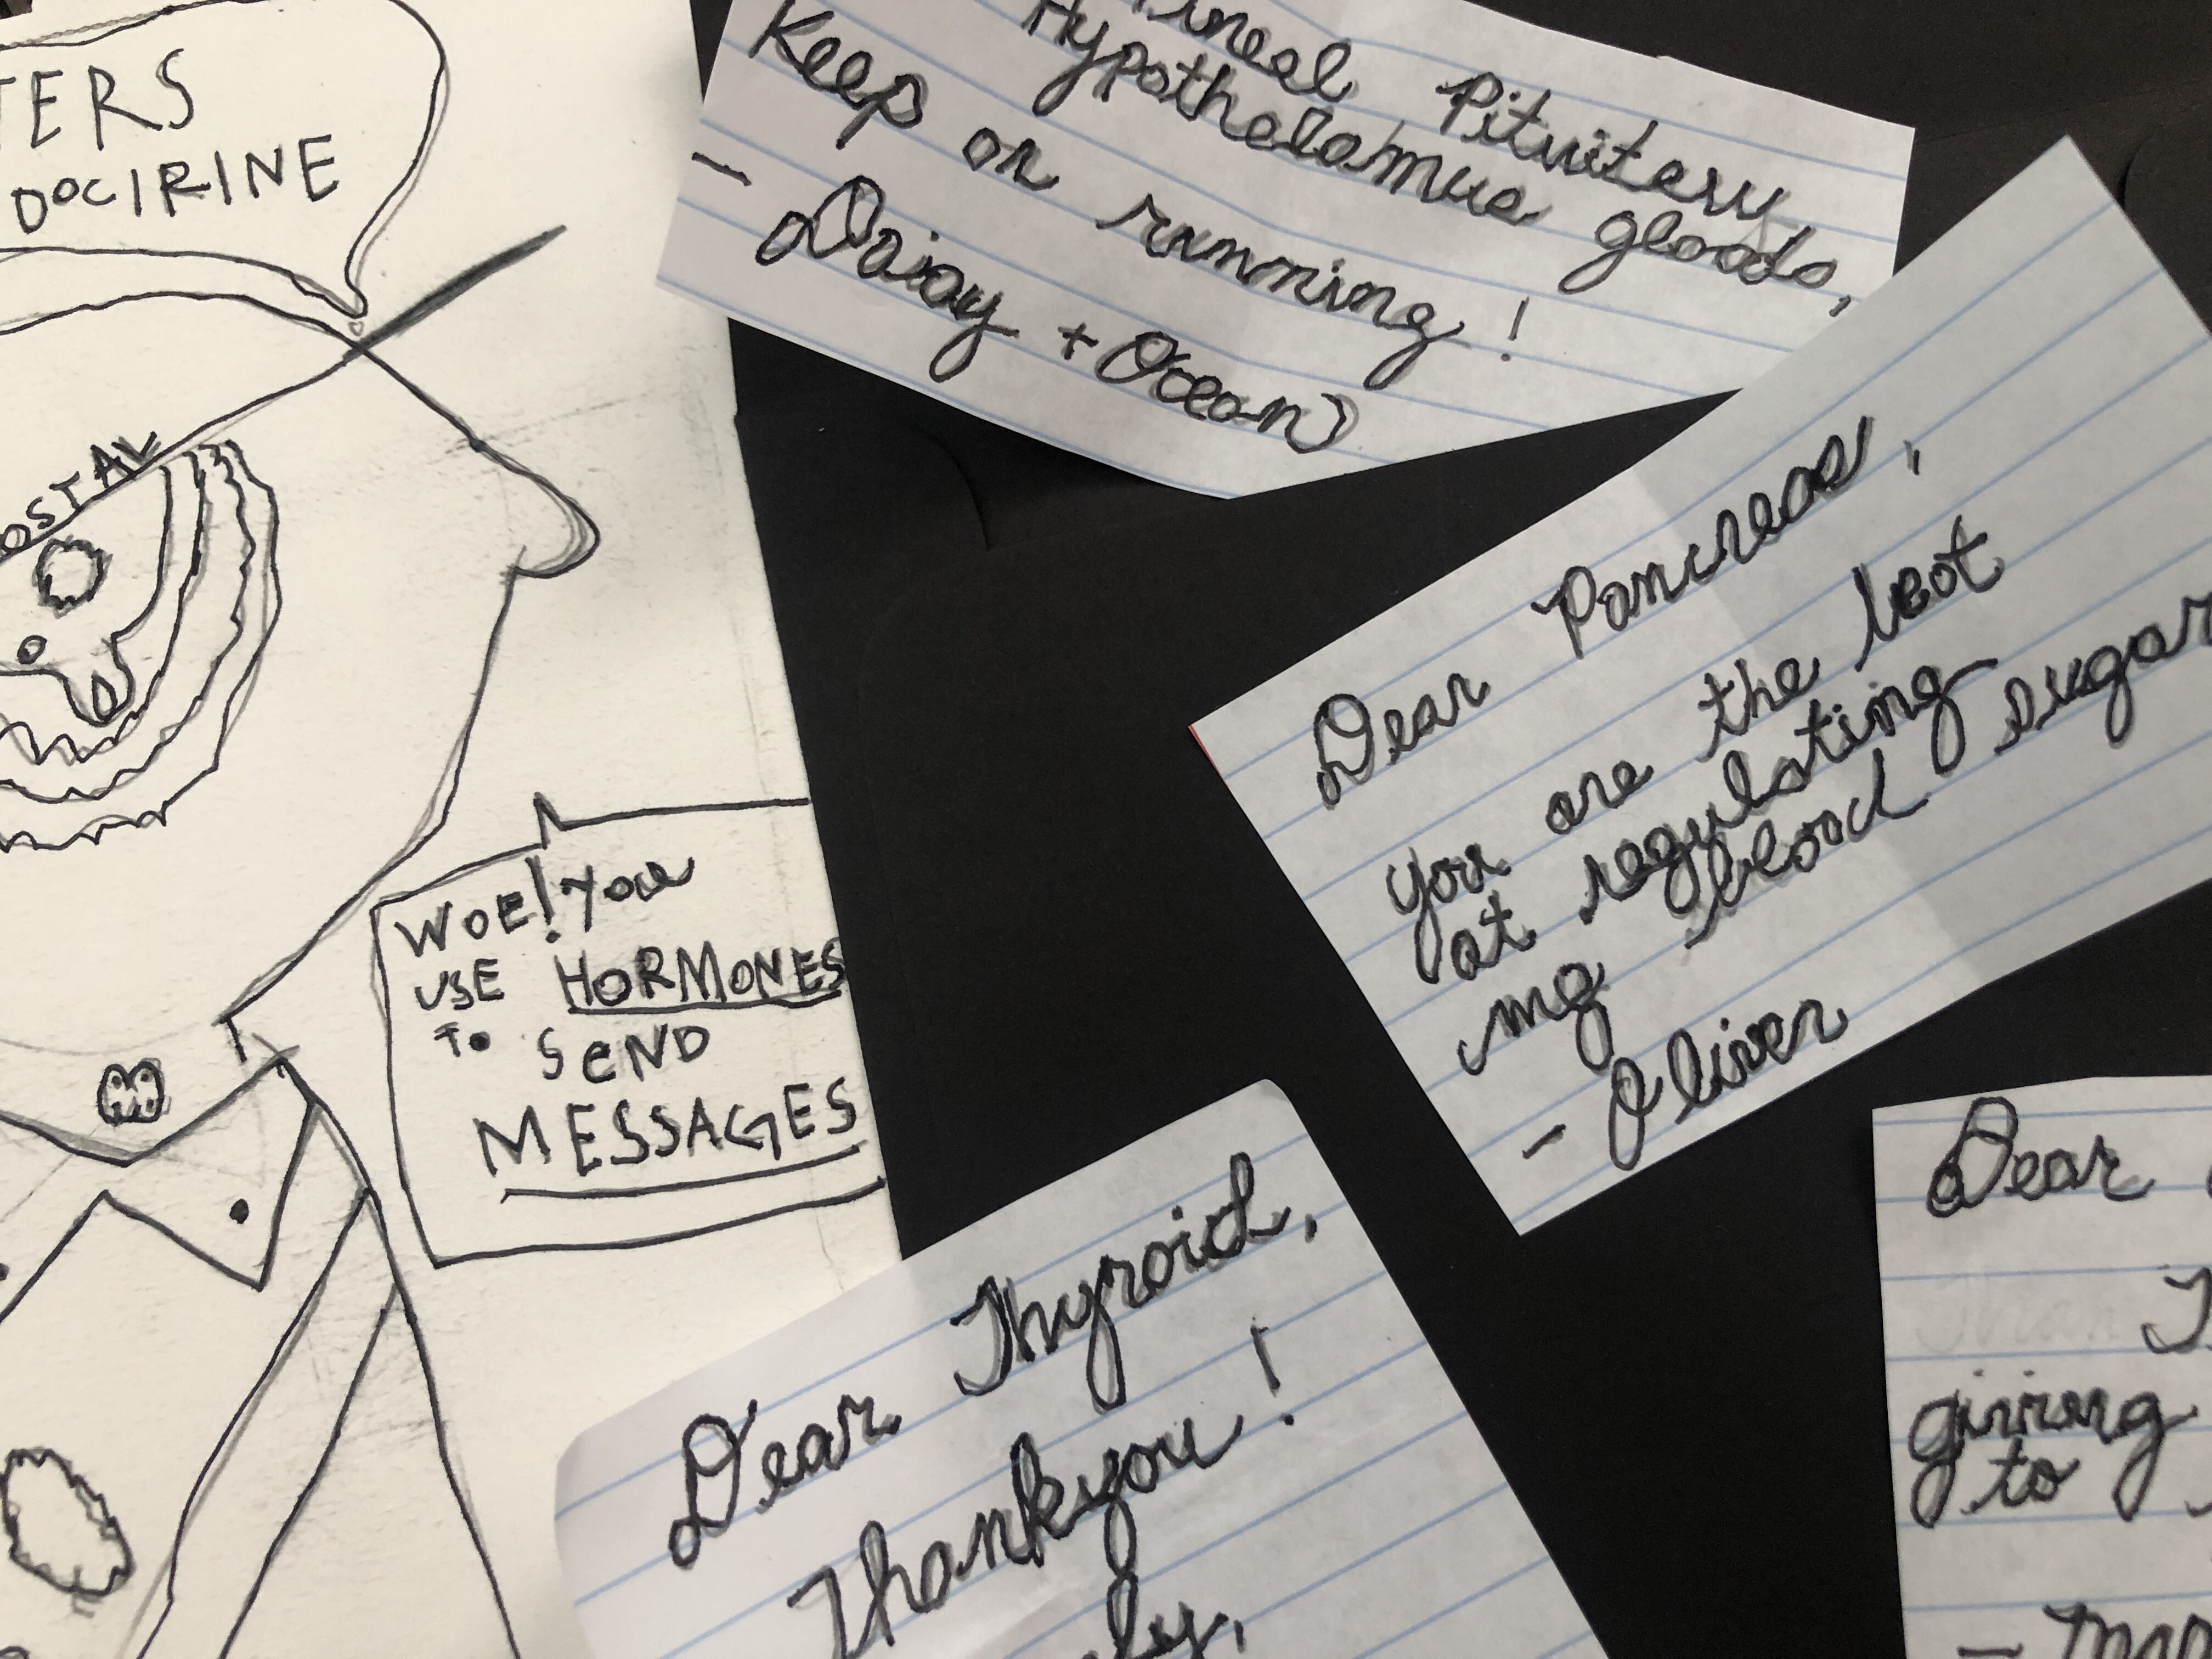 TERS
DOCIRINE
OSTAL
WOE! You
USE HORMONES
To SeND
MESSAGES
ineal Pituitary
Hypothalamus glands,
Keep on running!
- Daisy + Ocean
Dear Pancreas,
you are the best
at regulating
my blood sugar
- Oliver
Dear Thyroid,
Thankyou!
ly,
Dear
giving
to
- Mar